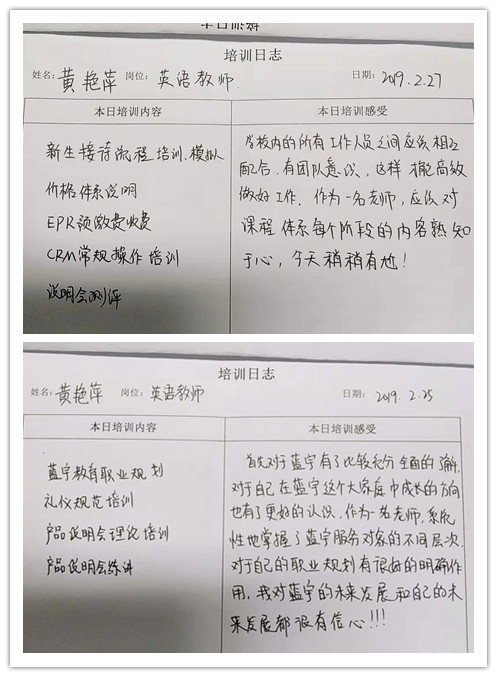 培训日志
姓名：黄艳萍 岗位：英语教师. 日期：2019.2.27
本日培训内容 本日培训感受
新生接待流程培训、模拟
价格体系说明
EPR预缴费收费
CRM常规操作培训
说明会测评
学校内的所有工作人员之间应该相互
配合，有团队意识，这样才能高效
做好工作。作为一名老师，应该对
课程体系每个阶段的内容熟知
于心，今天稍稍有尬！
培训日志
姓名：黄艳萍 岗位：英语教师 日期：2019.2.25
本日培训内容 本日培训感受
蓝宇教育职业规划
礼仪规范培训
产品说明会理论培训
产品说明会练讲
首先对于蓝宇有了比较充分全面的了解，
对于自己在蓝宇这个大家庭中成长的方向
也有了更好的认识，作为一名老师，系统
性地掌握了蓝宇服务对象的不同层次，
对于自己的职业规划有很好的明确作
用，我对蓝宇的未来发展和自己的未
来发展都很有信心!!!